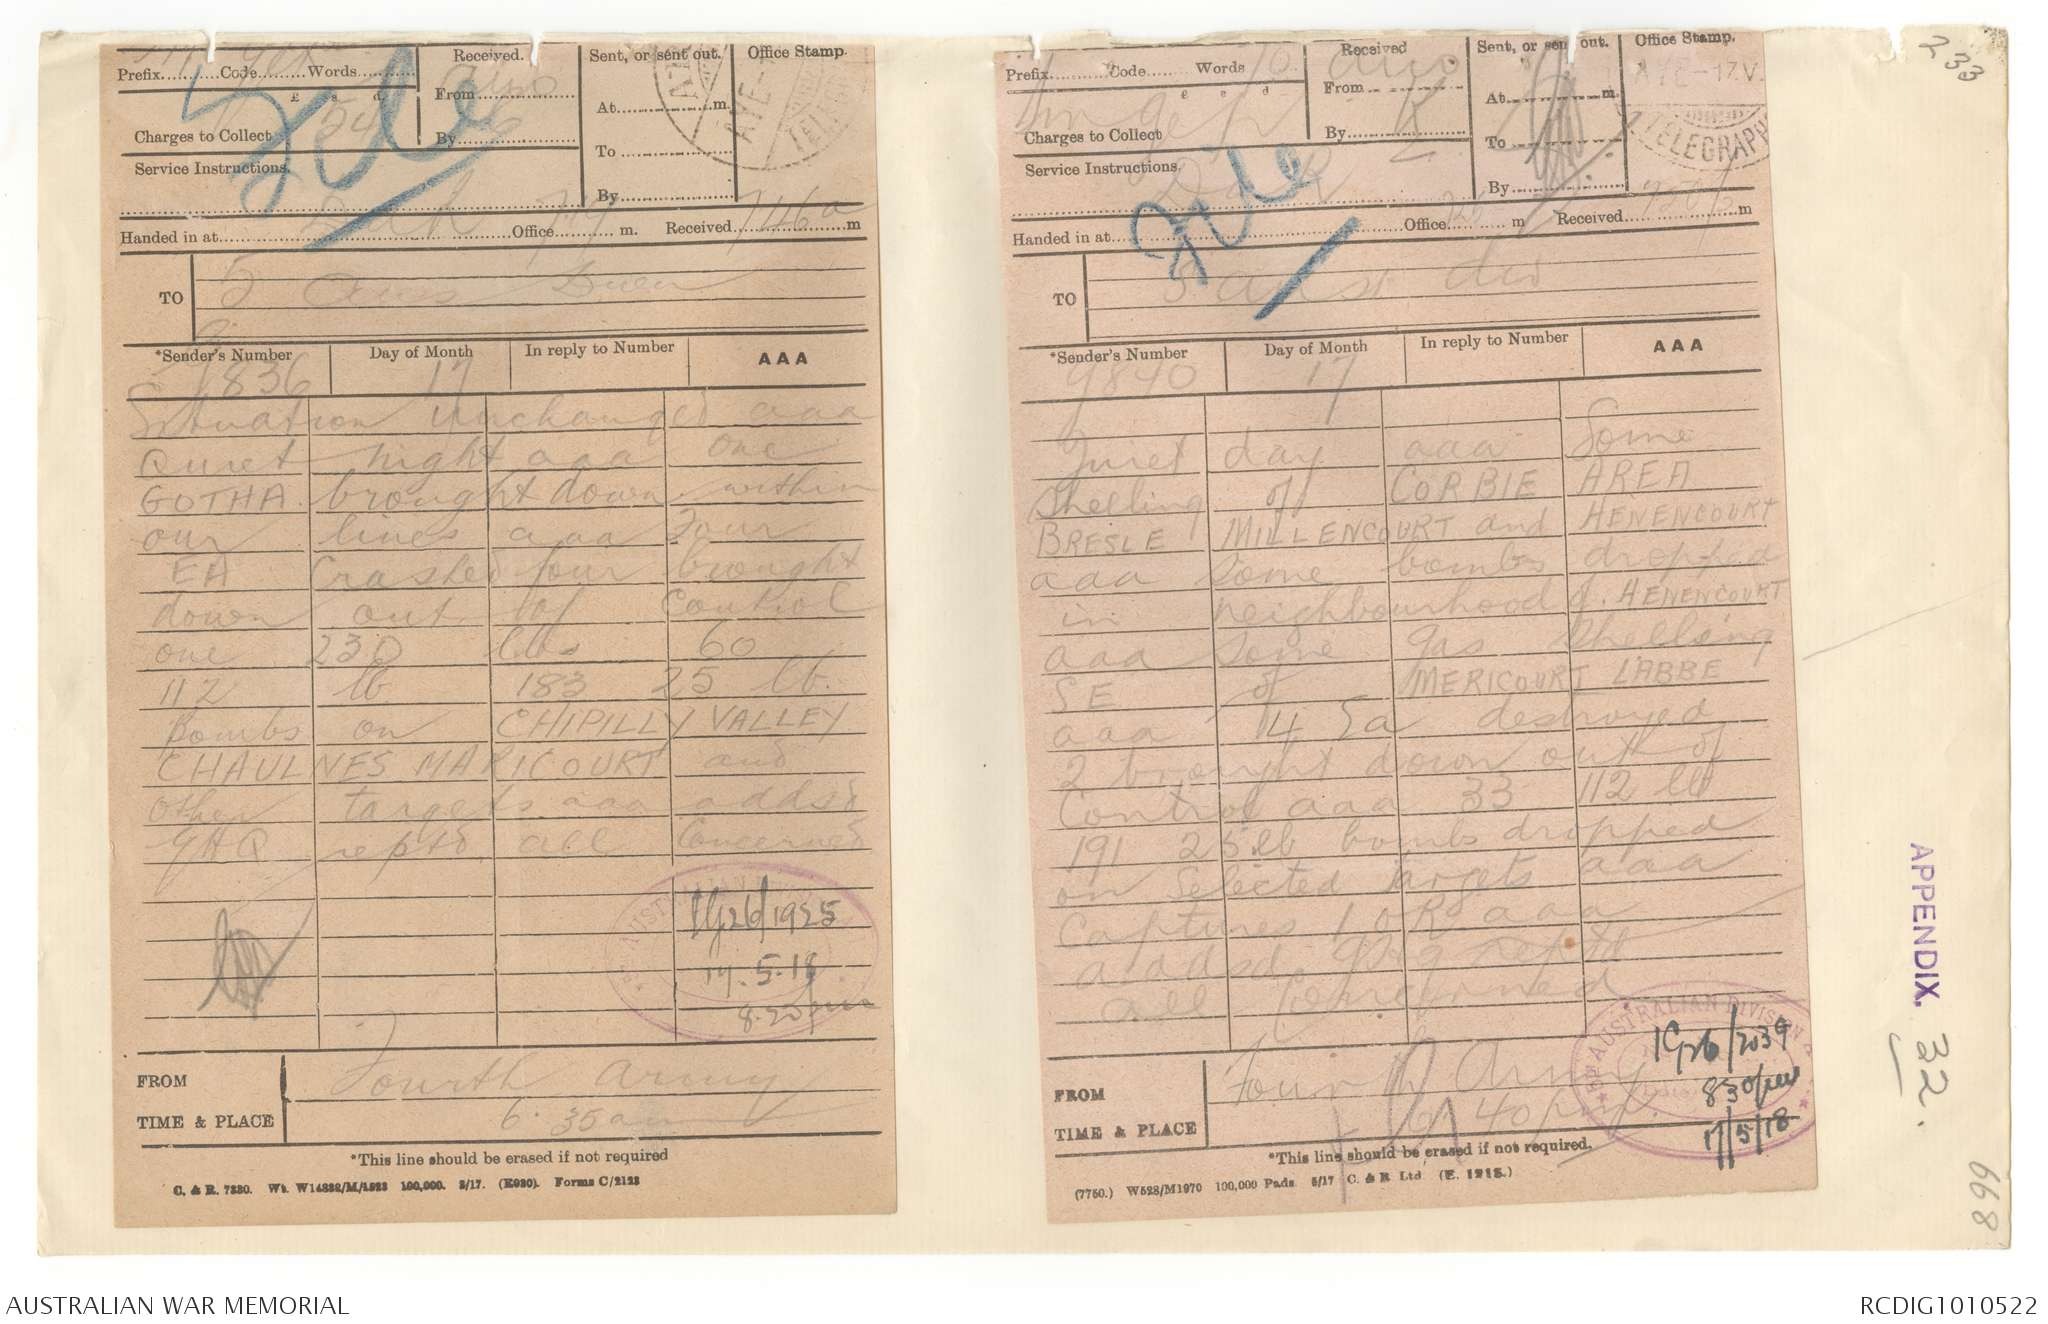 Prefix..........Code.........Words...........
£ s d.
Charges to Collect
Service Instructions.
Received.
From............
By................
Sent, or sent out.
At................m.
To................
By................
Office Stamp.
Handed in at..............Office............m. Received 7 46a m
TO
5 Aus Diven
*Sender's Number
Day of Month
In reply to Number
AAA
G836 17
Situation unchanged aaa
Quiet night aaa one
GOTHA brought down within
our lines aaa Four
EA Crashed four brought
down out of Control
one 230 lbs 60
112 lb 183 25 lb.
Bombs on CHIPILLY VALLEY
CHAULNES MARICOURT and
other targets aaa addsd
GHQ reptd all Concerned
IG26/1925
17.5.18
8.20pm
FROM
Fourth Army
TIME & PLACE
6.35am
*This line should be erased if not required
C. & R. 7330. Wt. W14832/M/1523 100,000. 3/17. (E930). Forms C/2123
Prefix..........Code.........Words
£ s d
Charges to Collect
Service Instructions.
Received
From
By
Sent, or sent out.
At................m.
To
By
Office Stamp.
17.V.
TELEGRAPH
Handed in at..............Office............m Received..............m
TO
5 Aust div
*Sender's Number
Day of Month
In reply to Number
AAA
G840 17
Quiet day aaa Some
Shelling of CORBIE AREA
BRESLE MILLENCOURT and HENENCOURT
aaa Some bombs dropped
in neighbourhood of HENENCOURT
aaa Some gas Shelling
SE of MERICOURT LABBE
aaa 14 Ea destroyed
2 brought down out of
Control aaa 33 112 lb
191 25 lb bombs dropped
on Selected Targets aaa
Captures 1 OR aaa
aaadsd GHQ reptd
all Concerned
AUSTRALIAN DIVISION
IG26/2039
830pm
17/5/18
FROM
Fourth Army
TIME & PLACE
6.40pm
*This line should be erased if not required.
(7750.) W528/M1970 100,000 Pads. 5/17 C. & R Ltd (E. 1213.)
233
APPENDIX. 32.
668
AUSTRALIAN WAR MEMORIAL
RCDIG1010522